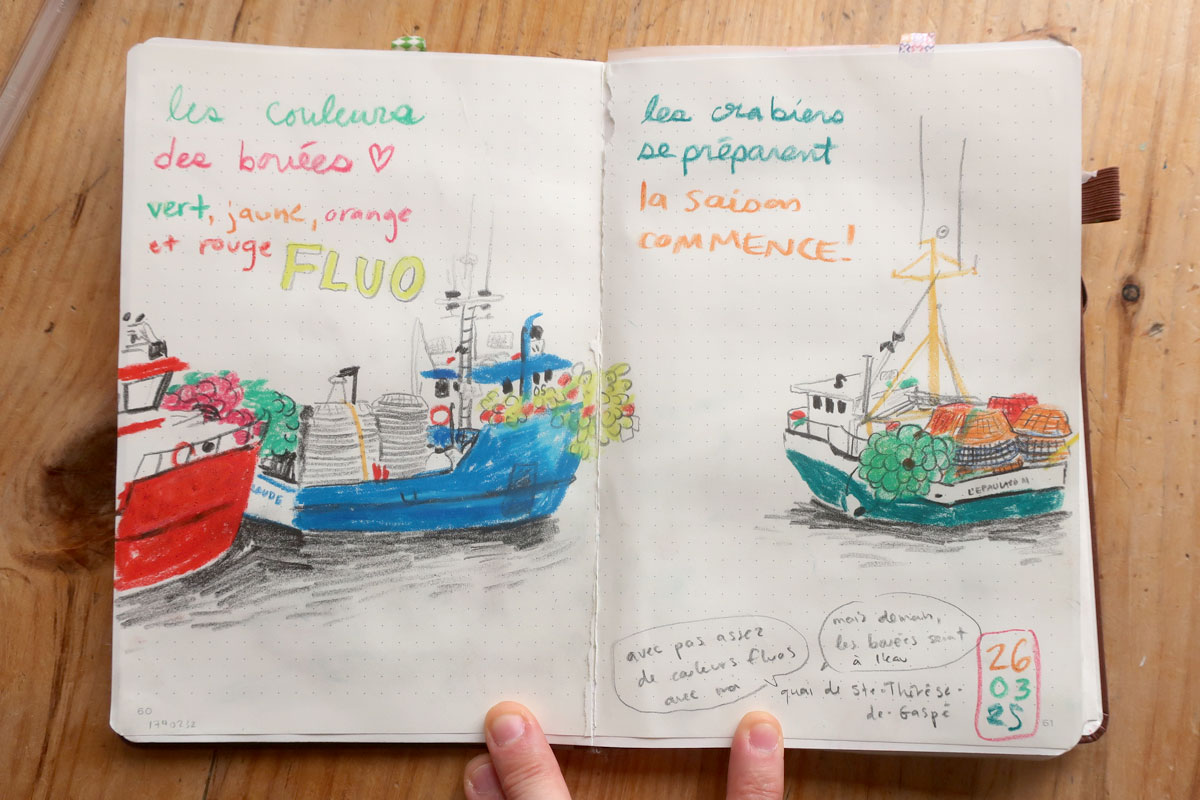 les couleurs
des bouées ♡
vert, jaune, orange
et rouge
FLUO
AUDE
60
les crabiers
se préparent
la saison
COMMENCE!
avec pas assez
de couleurs fluos
avec moi
mais demain,
les bouées sont
à l'eau
quai de Ste-Thérèse-
de-Gaspé
26
03
25
61